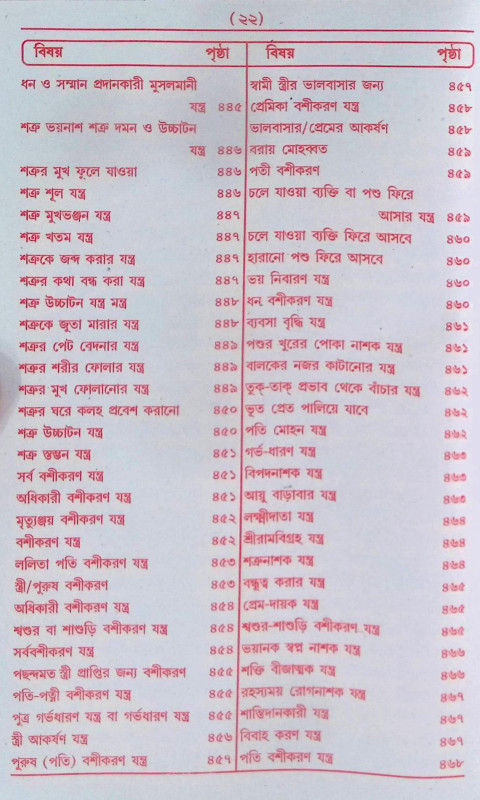 (২২)
বিষয় পৃষ্ঠা
ধন ও সম্মান প্রদানকারী মুসলমানী
যন্ত্র ৪৪৫
শত্রু ভয়নাশ শত্রু দমন ও উচ্চাটন
যন্ত্র ৪৪৬
শত্রুর মুখ ফুলে যাওয়া ৪৪৬
শত্রু শূল যন্ত্র ৪৪৬
শত্রু মুখভঞ্জন যন্ত্র ৪৪৭
শত্রু খতম যন্ত্র ৪৪৭
শত্রুকে জব্দ করার যন্ত্র ৪৪৭
শত্রুর কথা বন্ধ করা যন্ত্র ৪৪৭
শত্রু উচ্চাটন যন্ত্র মন্ত্র ৪৪৮
শত্রুকে জুতা মারার যন্ত্র ৪৪৮
শত্রুর পেট বেদনার যন্ত্র ৪৪৯
শত্রুর শরীর ফোলার যন্ত্র ৪৪৯
শত্রুর মুখ ফোলানোর যন্ত্র ৪৪৯
শত্রুর ঘরে কলহ প্রবেশ করানো ৪৫০
শত্রু উচ্চাটন যন্ত্র ৪৫০
শত্রু স্তম্ভন যন্ত্র ৪৫১
সর্ব বশীকরণ যন্ত্র ৪৫১
অধিকারী বশীকরণ যন্ত্র ৪৫১
মৃত্যুঞ্জয় বশীকরণ যন্ত্র ৪৫২
বশীকরণ যন্ত্র ৪৫২
ললিতা পতি বশীকরণ যন্ত্র ৪৫৩
স্ত্রী/পুরুষ বশীকরণ ৪৫৩
অধিকারী বশীকরণ যন্ত্র ৪৫৪
শ্বশুর বা শাশুড়ি বশীকরণ যন্ত্র ৪৫৪
সর্ববশীকরণ যন্ত্র ৪৫৪
পছন্দমত স্ত্রী প্রাপ্তির জন্য বশীকরণ ৪৫৫
পতি-পত্নী বশীকরণ যন্ত্র ৪৫৫
পুত্র গর্ভধারণ যন্ত্র বা গর্ভধারণ যন্ত্র ৪৫৫
স্ত্রী আকর্ষণ যন্ত্র ৪৫৬
পুরুষ (পতি) বশীকরণ যন্ত্র ৪৫৭
বিষয় পৃষ্ঠা
স্বামী স্ত্রীর ভালবাসার জন্য ৪৫৭
প্রেমিকা বশীকরণ যন্ত্র ৪৫৮
ভালবাসার/প্রেমের আকর্ষণ ৪৫৮
বরায় মোহব্বত ৪৫৯
পতী বশীকরণ ৪৫৯
চলে যাওয়া ব্যক্তি বা পশু ফিরে
আসার যন্ত্র ৪৫৯
চলে যাওয়া ব্যক্তি ফিরে আসবে ৪৬০
হারানো পশু ফিরে আসবে ৪৬০
ভয় নিবারণ যন্ত্র ৪৬০
ধন বশীকরণ যন্ত্র ৪৬০
ব্যবসা বৃদ্ধি যন্ত্র ৪৬১
পশুর খুরের পোকা নাশক যন্ত্র ৪৬১
বালকের নজর কাটানোর যন্ত্র ৪৬১
তুক্-তাক্ প্রভাব থেকে বাঁচার যন্ত্র ৪৬২
ভূত প্রেত পালিয়ে যাবে ৪৬২
পতি মোহন যন্ত্র ৪৬২
গর্ভ-ধারণ যন্ত্র ৪৬৩
বিপদনাশক যন্ত্র ৪৬৩
আয়ু বাড়াবার যন্ত্র ৪৬৩
লক্ষ্মীদাতা যন্ত্র ৪৬৪
শ্রীরামবিগ্রহ যন্ত্র ৪৬৪
শত্রুনাশক যন্ত্র ৪৬৪
বন্ধুত্ব করার যন্ত্র ৪৬৫
প্রেম-দায়ক যন্ত্র ৪৬৫
শ্বশুর-শাশুড়ি বশীকরণ যন্ত্র ৪৬৫
ভয়ানক স্বপ্ন নাশক যন্ত্র ৪৬৬
শক্তি বীজাত্মক যন্ত্র ৪৬৬
রহস্যময় রোগনাশক যন্ত্র ৪৬৭
শান্তিদানকারী যন্ত্র ৪৬৭
বিবাহ করণ যন্ত্র ৪৬৭
পতি বশীকরণ যন্ত্র ৪৬৮